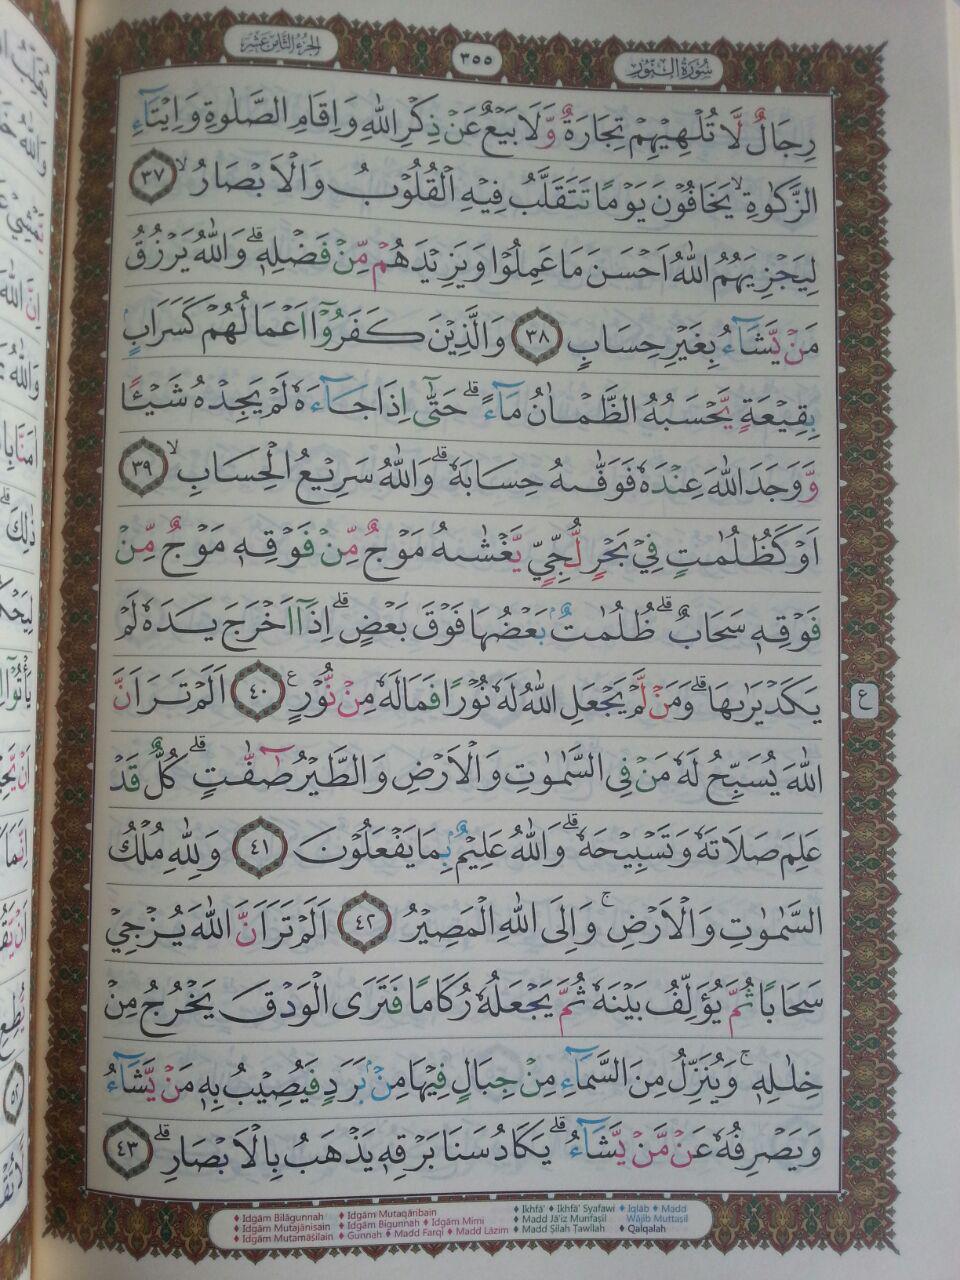 الجزء الثامن عشر
٣٥٥
سورة النور
رِجَالٌ لَّا تُلْهِيْهِمْ تِجَارَةٌ وَّلَا بَيْعٌ عَنْ ذِكْرِ اللّٰهِ وَاِقَامِ الصَّلٰوةِ وَاِيْتَاۤءِ
الزَّكٰوةِ ۙيَخَافُوْنَ يَوْمًا تَتَقَلَّبُ فِيْهِ الْقُلُوْبُ وَالْاَبْصَارُ ۙ ٣٧
لِيَجْزِيَهُمُ اللّٰهُ اَحْسَنَ مَا عَمِلُوْا وَيَزِيْدَهُمْ مِّنْ فَضْلِهٖۗ وَاللّٰهُ يَرْزُقُ
مَنْ يَّشَاۤءُ بِغَيْرِ حِسَابٍ ٣٨ وَالَّذِيْنَ كَفَرُوْٓا اَعْمَالُهُمْ كَسَرَابٍ
بِقِيْعَةٍ يَّحْسَبُهُ الظَّمْاٰنُ مَاۤءًۗ حَتّٰٓى اِذَا جَاۤءَهٗ لَمْ يَجِدْهُ شَيْـًٔا
وَّوَجَدَ اللّٰهَ عِنْدَهٗ فَوَفّٰىهُ حِسَابَهٗ ۗ وَاللّٰهُ سَرِيْعُ الْحِسَابِ ۙ ٣٩
اَوْ كَظُلُمٰتٍ فِيْ بَحْرٍ لُّجِّيٍّ يَّغْشٰىهُ مَوْجٌ مِّنْ فَوْقِهٖ مَوْجٌ مِّنْ
فَوْقِهٖ سَحَابٌۗ ظُلُمٰتٌۢ بَعْضُهَا فَوْقَ بَعْضٍۗ اِذَآ اَخْرَجَ يَدَهٗ لَمْ
يَكَدْ يَرٰىهَاۗ وَمَنْ لَّمْ يَجْعَلِ اللّٰهُ لَهٗ نُوْرًا فَمَا لَهٗ مِنْ نُّوْرٍ ࣖ ٤٠ اَلَمْ تَرَ اَنَّ
ع
اللّٰهَ يُسَبِّحُ لَهٗ مَنْ فِى السَّمٰوٰتِ وَالْاَرْضِ وَالطَّيْرُ صٰۤفّٰتٍۗ كُلٌّ قَدْ
عَلِمَ صَلَاتَهٗ وَتَسْبِيْحَهٗۗ وَاللّٰهُ عَلِيْمٌۢ بِمَا يَفْعَلُوْنَ ٤١ وَلِلّٰهِ مُلْكُ
السَّمٰوٰتِ وَالْاَرْضِۚ وَاِلَى اللّٰهِ الْمَصِيْرُ ٤٢ اَلَمْ تَرَ اَنَّ اللّٰهَ يُزْجِيْ
سَحَابًا ثُمَّ يُؤَلِّفُ بَيْنَهٗ ثُمَّ يَجْعَلُهٗ رُكَامًا فَتَرَى الْوَدْقَ يَخْرُجُ مِنْ
خِلٰلِهٖۚ وَيُنَزِّلُ مِنَ السَّمَاۤءِ مِنْ جِبَالٍ فِيْهَا مِنْۢ بَرَدٍ فَيُصِيْبُ بِهٖ مَنْ يَّشَاۤءُ
وَيَصْرِفُهٗ عَنْ مَّنْ يَّشَاۤءُۗ يَكَادُ سَنَا بَرْقِهٖ يَذْهَبُ بِالْاَبْصَارِ ۗ ٤٣
Idgām Bilāgunnah Idgām Mutaqāribain Ikhfā' Ikhfā' Syafawi Iqlāb Madd
Idgām Mutajānisain Idgām Bigunnah Idgām Mimi Madd Jā'iz Munfaṣil Wājib Muttaṣil
Idgām Mutamāṡilain Gunnah Madd Farqi Madd Lāzim Madd Ṣilah Ṭawīlah Qalqalah